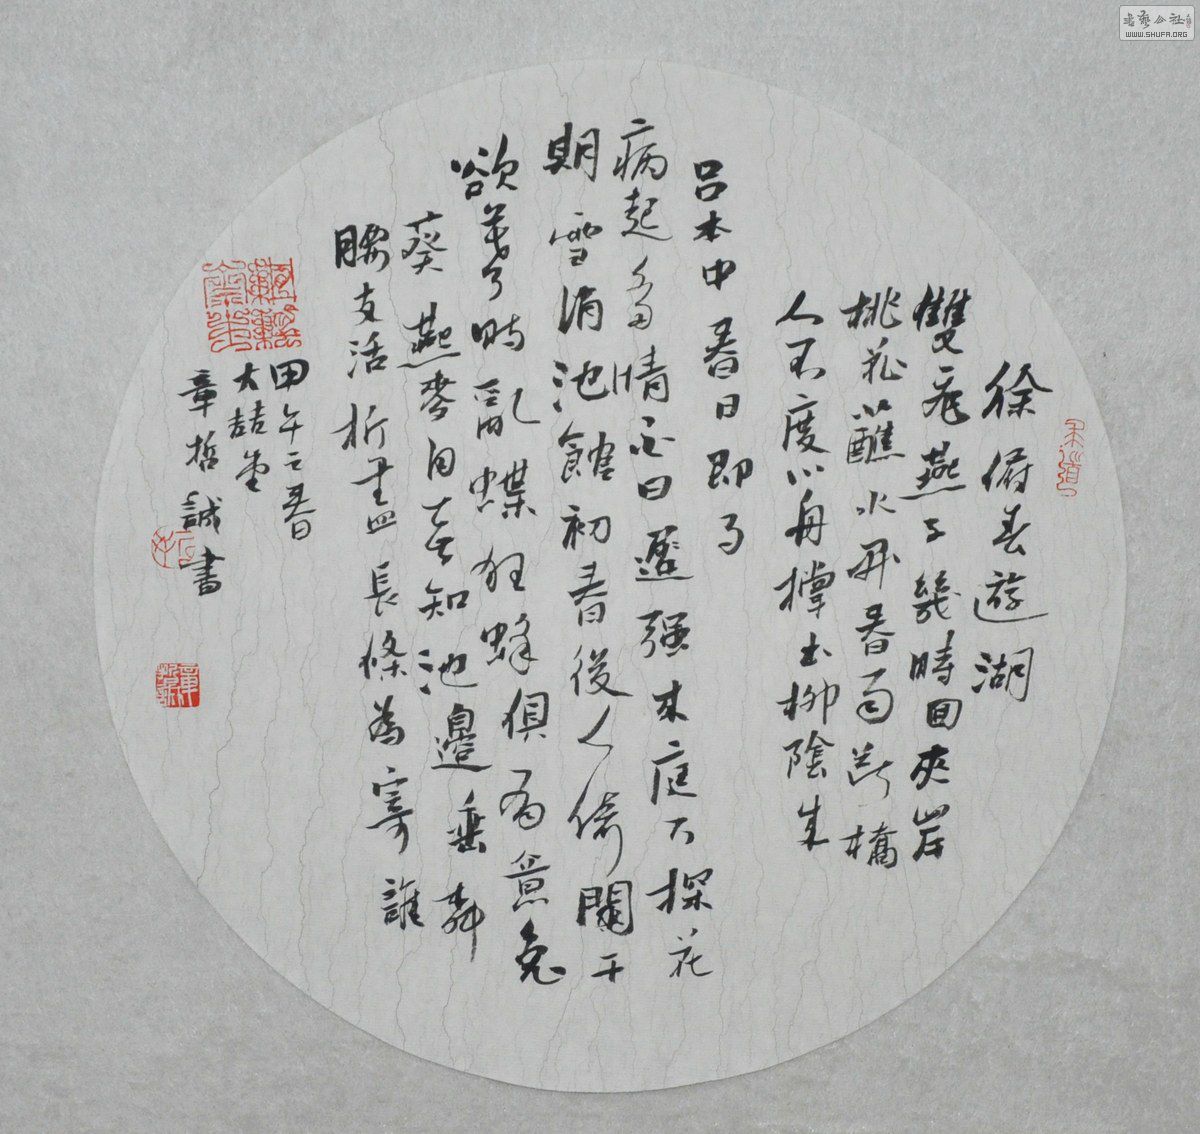 徐俯春遊湖
雙飛燕子幾時回夾岸
桃花蘸水開春雨斷橋
人不度小舟撐出柳陰來
呂本中春日即事
病起多情白日遲强來庭下探花
期雪消池館初春後人倚闌干
欲暮時亂蝶狂蜂俱有意兔
葵燕麥自無知池邊垂柳
腰支活折盡長條為寄誰
甲午之春
大喆堂
章哲誠書
書藝公社
WWW.SHUFA.ORG